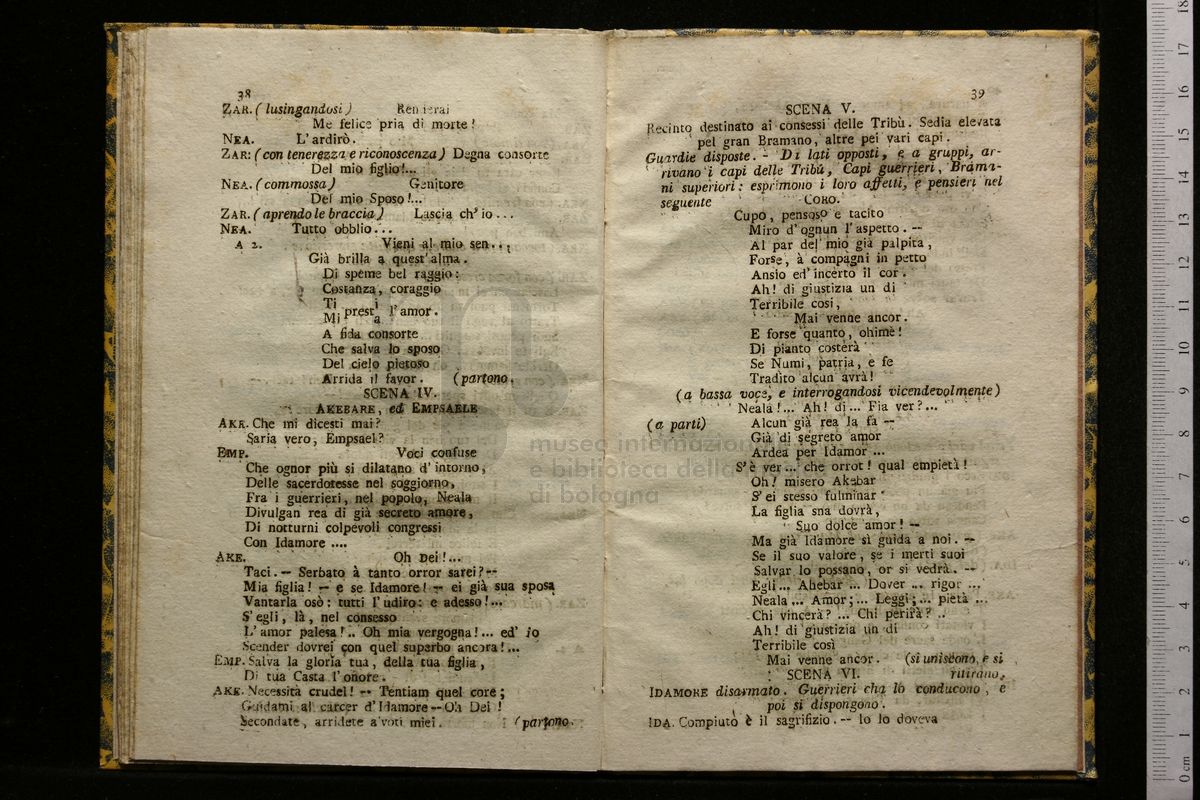 38
ZAR. (lusingandosi) Renderai
Me felice pria di morte!
NEA. L'ardirò.
ZAR: (con tenerezza e riconoscenza) Degna consorte
Del mio figlio!...
NEA. (commossa) Genitore
Del mio Sposo!...
ZAR. (aprendo le braccia) Lascia ch'io...
NEA. Tutto obblio...
A 2. Vieni al mio sen...
Già brilla a quest'alma.
Di speme bel raggio:
Costanza, coraggio
Ti i
Mi prest a l'amor.
A fida consorte
Che salva lo sposo
Del cielo pietoso
Arrida il favor. (partono.
SCENA IV.
AKEBARE, ed EMPSAELE
AKE. Che mi dicesti mai?
Saria vero, Empsael?
EMP. Voci confuse
Che ognor più si dilatano d'intorno,
Delle sacerdotesse nel soggiorno,
Fra i guerrieri, nel popolo, Neala
Divulgan rea di già secreto amore,
Di notturni colpevoli congressi
Con Idamore ....
AKE. Oh Dei!...
Taci. -- Serbato à tanto orror sarei? --
Mia figlia! -- e se Idamore! -- ei già sua sposa
Vantarla osò: tutti l'udiro: e adesso!...
S'egli, là, nel consesso
L'amor palesa!.. Oh mia vergogna!... ed' io
Scender dovrei con quel superbo ancora!...
EMP. Salva la gloria tua, della tua figlia,
Di tua Casta l'onore.
AKE. Necessità crudel! -- Tentiam quel core;
Guidami al carcer d'Idamore -- Oh Dei!
Secondate, arridete a'voti miei. (partono.
39
SCENA V.
Recinto destinato ai consessi delle Tribù. Sedia elevata
pel gran Bramano, altre pei vari capi.
Guardie disposte. - Da lati opposti, e a gruppi, ar-
rivano i capi delle Tribù, Capi guerrieri, Brama-
ni superiori: esprimono i loro affetti, e pensieri nel
seguente CORO.
Cupo, pensoso e tacito
Miro d'ognun l'aspetto. --
Al par del mio già palpita,
Forse, à compagni in petto
Ansio ed' incerto il cor.
Ah! di giustizia un di
Terribile cosi,
Mai venne ancor.
E forse quanto, ohimè!
Di pianto costerà
Se Numi, patria, e fe
Tradito alcun avrà!
(a bassa voce, e interrogandosi vicendevolmente)
Neala!... Ah! di... Fia ver?...
(a parti) Alcun già rea la fa --
Già di segreto amor
Ardea per Idamor ...
S'è ver... che orrot! qual empietà!
Oh! misero Akebar
S'ei stesso fulminar
La figlia sna dovrà,
Suo dolce amor! --
Ma già Idamore sì guida a noi. --
Se il suo valore, se i merti suoi
Salvar lo possano, or si vedrà. --
Egli... Ahebar ... Dover ... rigor ...
Neala... Amor;... Leggi;... pietà ...
Chi vincerà? ... Chi perirà? ..
Ah! di giustizia un di
Terribile così
Mai venne ancor. (si uniscono, e si
SCENA VI. ritirano.
IDAMORE disarmato. Guerrieri cha lo conducono, e
poi si dispongono.
IDA. Compiuto è il sagrifizio. -- Io lo doveva
museo internazionale
e biblioteca della
di bologna